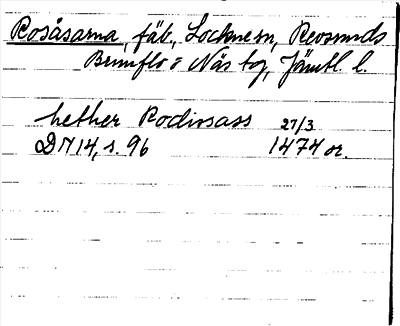 Rosåsarna, fäb., Lockne sn, Revsunds
Brunflo o Näs tg, Jämtl. l.
hether Rodinsass 27/3
DN 14, s. 96 1474 or.